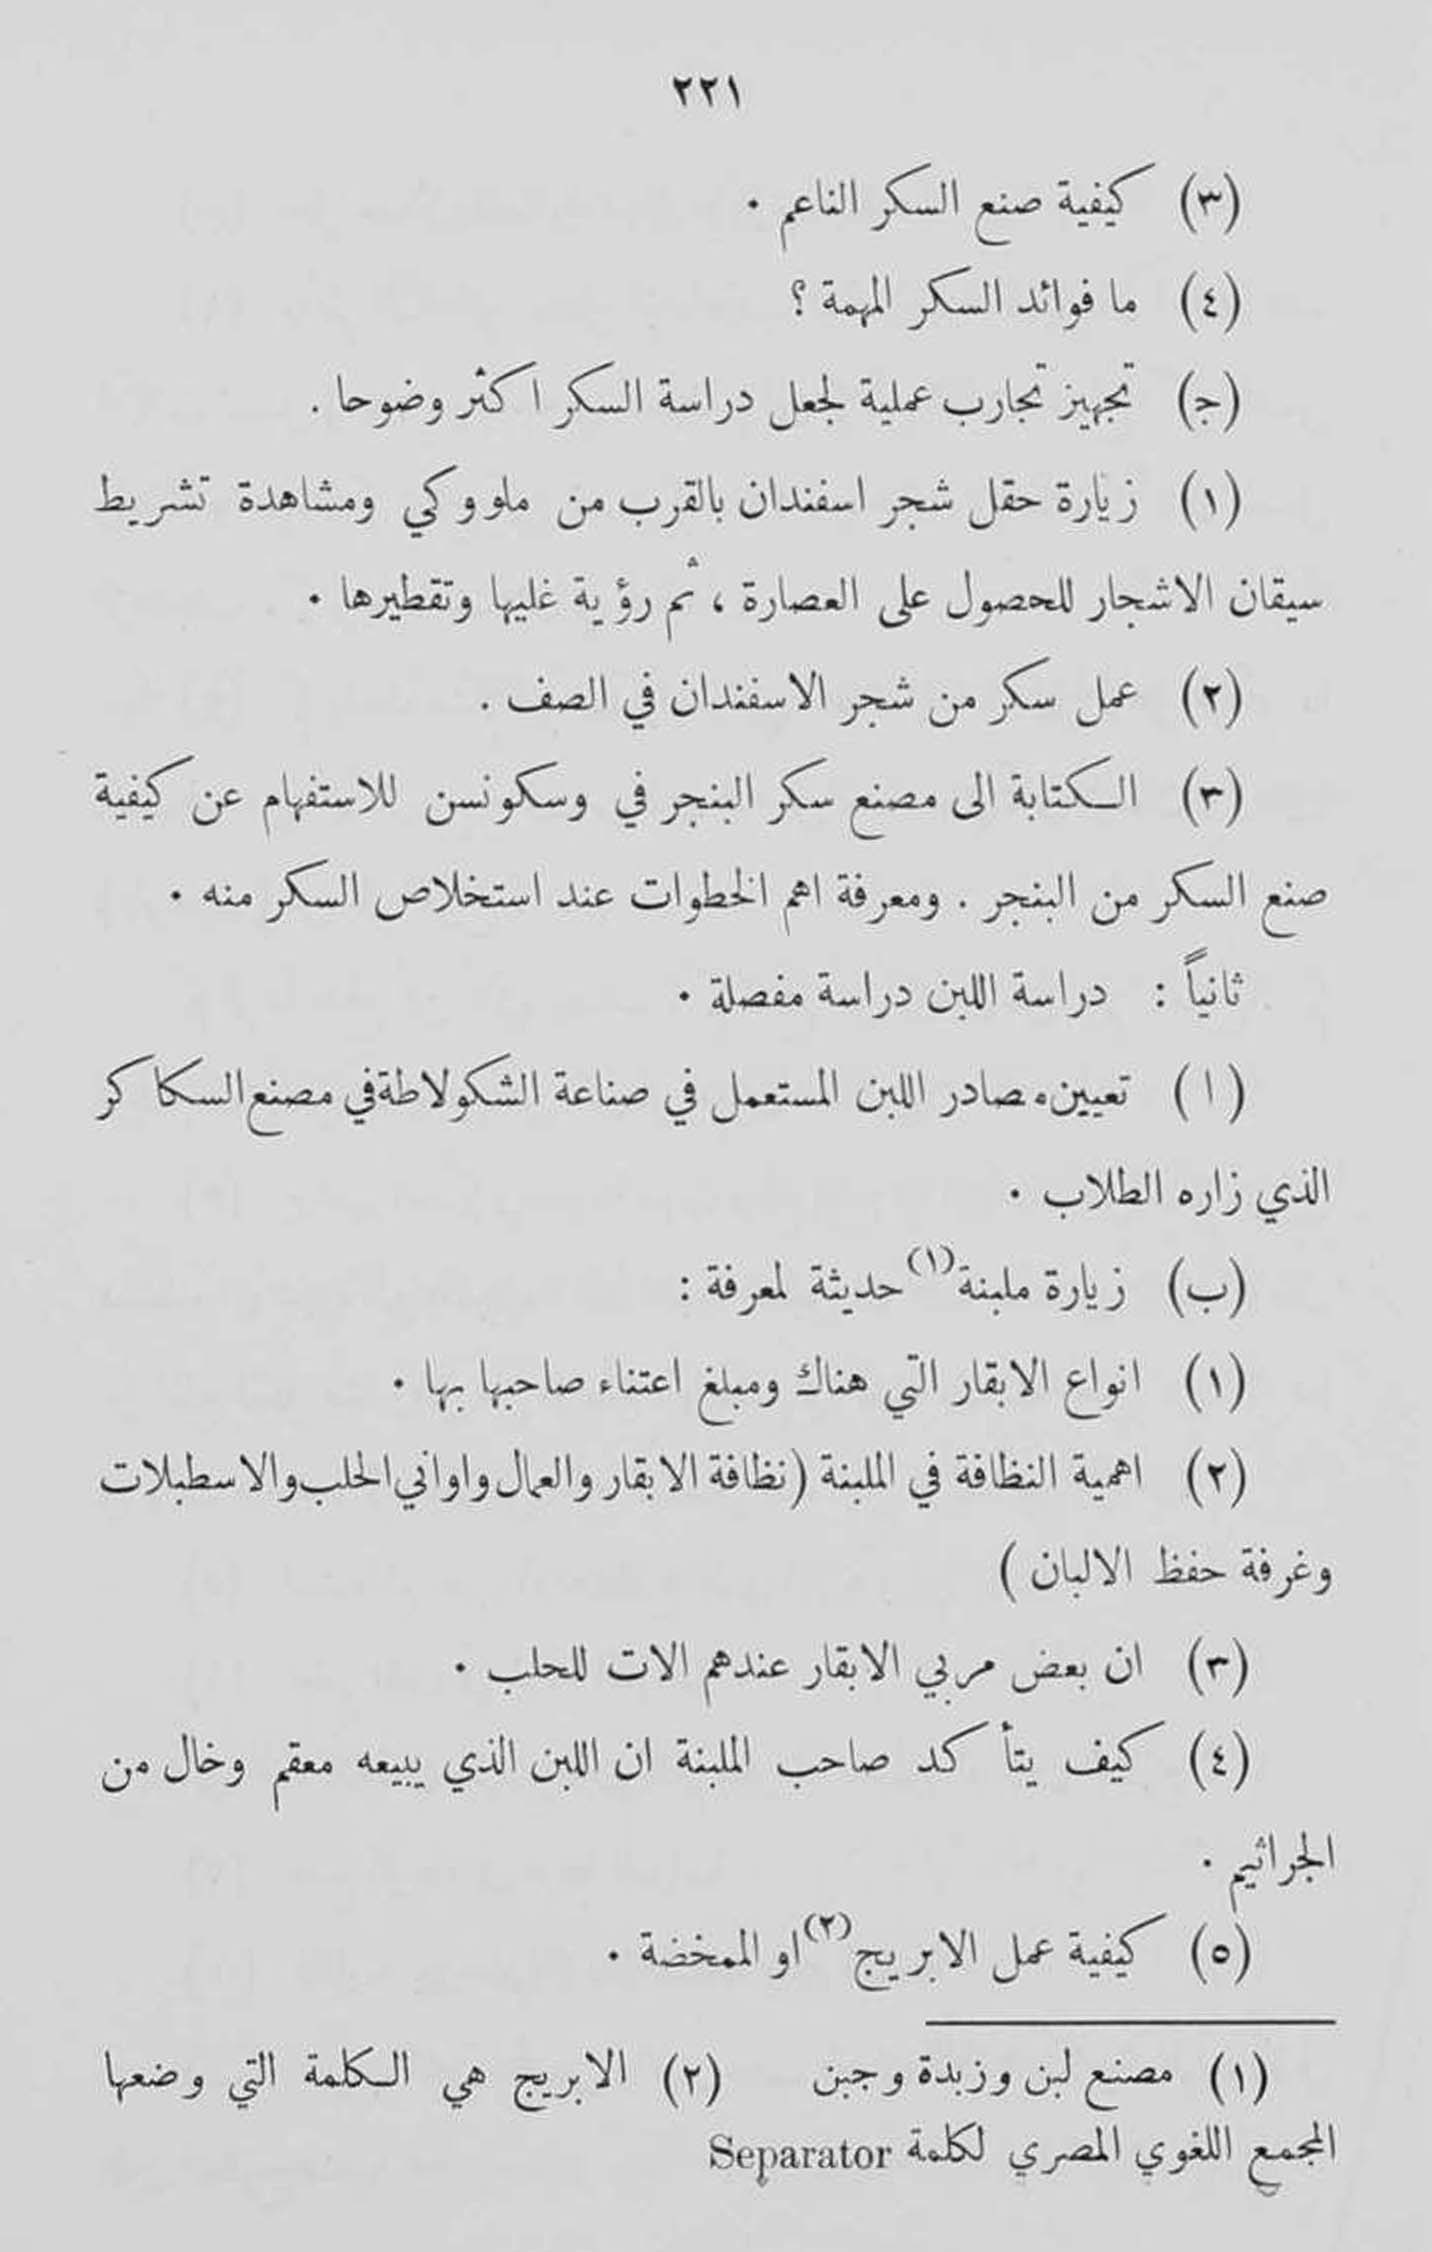 ٢٢١
(٣) كيفية صنع السكر الناعم .
(٤) ما فوائد السكر المهمة ؟
(ج) تجهيز تجارب عملية لجعل دراسة السكر اكثر وضوحا .
(١) زيارة حقل شجر اسفندان بالقرب من ملووكي ومشاهدة تشريط
سيقان الاشجار للحصول على العصارة ، ثم رؤية غليها وتقطيرها .
(٢) عمل سكر من شجر الاسفندان في الصف .
(٣) الكتابة الى مصنع سكر البنجر في وسكونسن للاستفهام عن كيفية
صنع السكر من البنجر . ومعرفة اهم الخطوات عند استخلاص السكر منه .
ثانياً : دراسة اللبن دراسة مفصلة .
(ا) تعيين مصادر اللبن المستعمل في صناعة الشكولاطة في مصنع السكاكر
الذي زاره الطلاب .
(ب) زيارة ملبنة (١) حديثة لمعرفة :
(١) انواع الابقار التي هناك ومبلغ اعتناء صاحبها بها .
(٢) اهمية النظافة في الملبنة (نظافة الابقار والعمال واواني الحلب والاسطبلات
وغرفة حفظ الالبان )
(٣) ان بعض مربي الابقار عندهم الات للحلب .
(٤) كيف يتأكد صاحب الملبنة ان اللبن الذي يبيعه معقم وخال من
الجراثيم .
(٥) كيفية عمل الابريج (٢) او الممخضة .
(١) مصنع لبن وزبدة وجبن (٢) الابريج هي الكلمة التي وضعها
المجمع اللغوي المصري لكلمة Separator